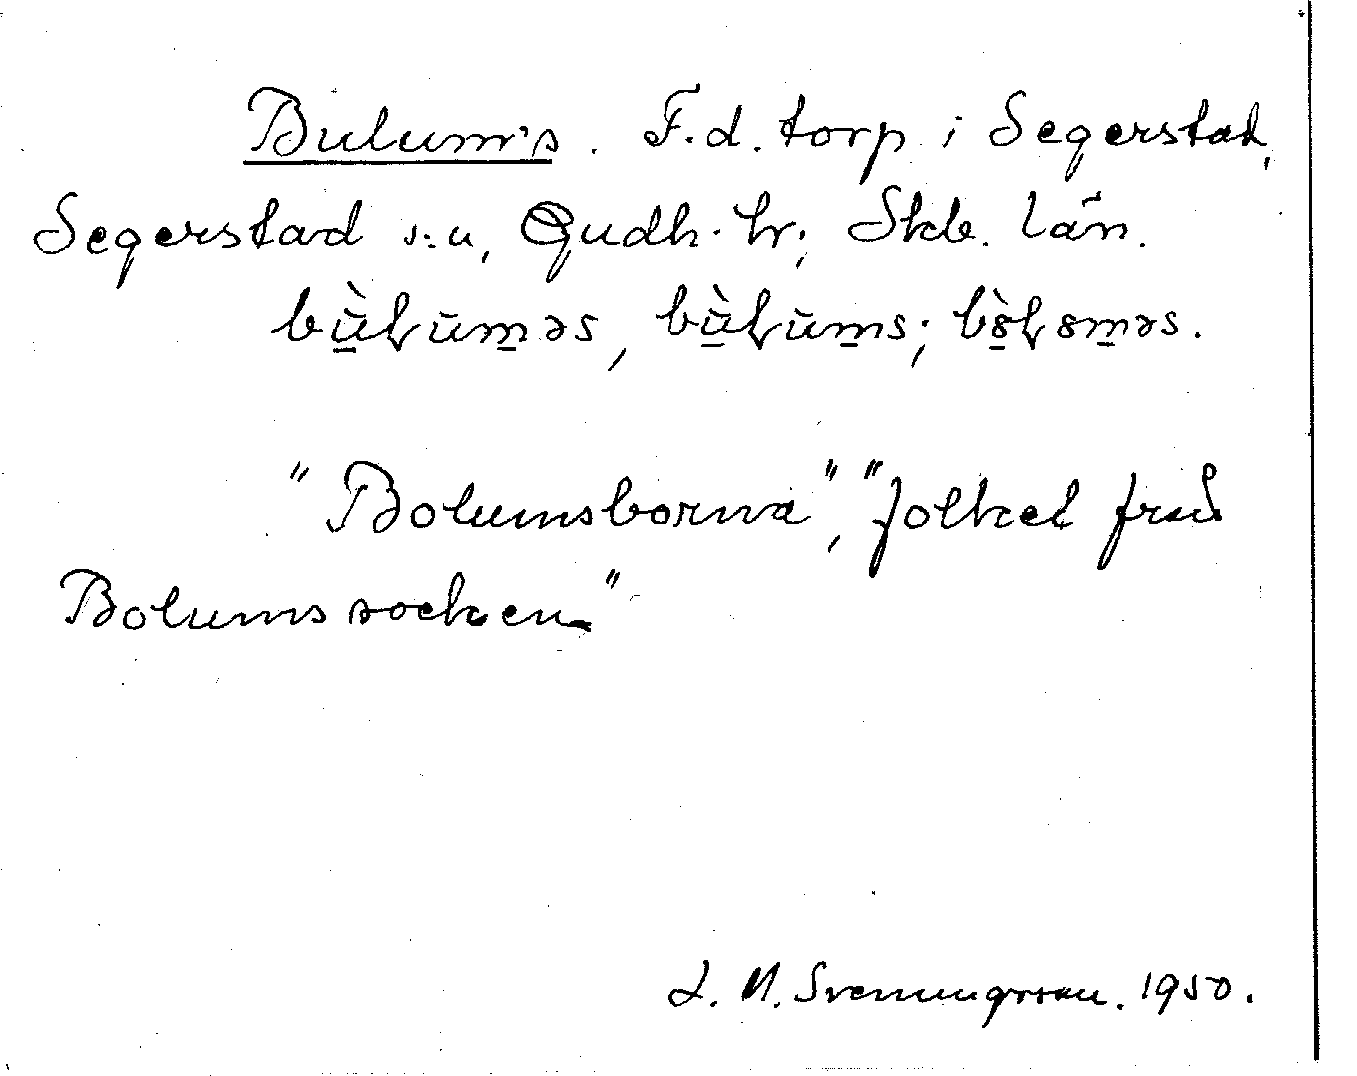 Bulum's. F.d. torp i Segerstad,
Segerstad s:n, Gudh. hr; Skb. län.
bù̱ɫūm̱əs, bù̱ɫūm̱s; bȣ̱̀ɫȣm̱əs.
"Bolumsborna", "folket från
Bolums socken"
L. M. Svenungsson. 1950.